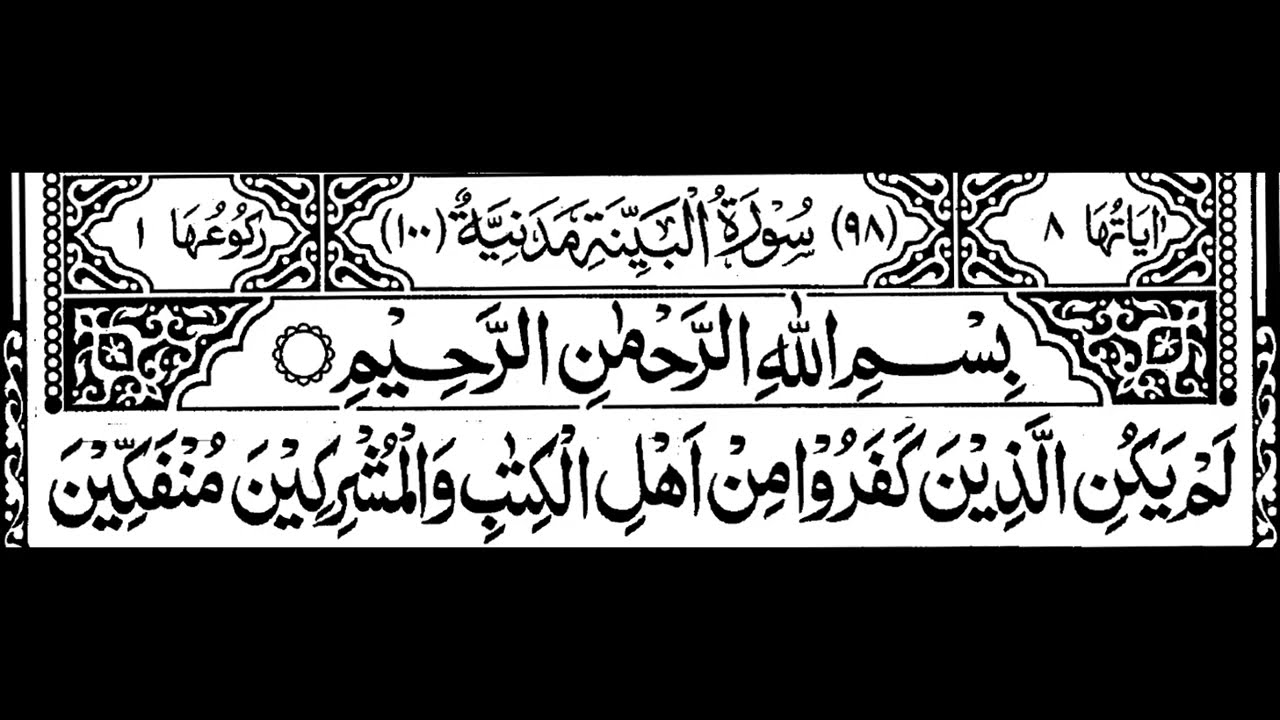 اٰيَاتُهَا ٨ (٩٨) سُوْرَةُ الْبَيِّنَةِ مَدَنِيَّةٌ (١٠٠) رَكُوْعُهَا ١
بِسْمِ اللّٰهِ الرَّحْمٰنِ الرَّحِيْمِ
لَمْ يَكُنِ الَّذِيْنَ كَفَرُوْا مِنْ اَهْلِ الْكِتٰبِ وَالْمُشْرِكِيْنَ مُنْفَكِّيْنَ